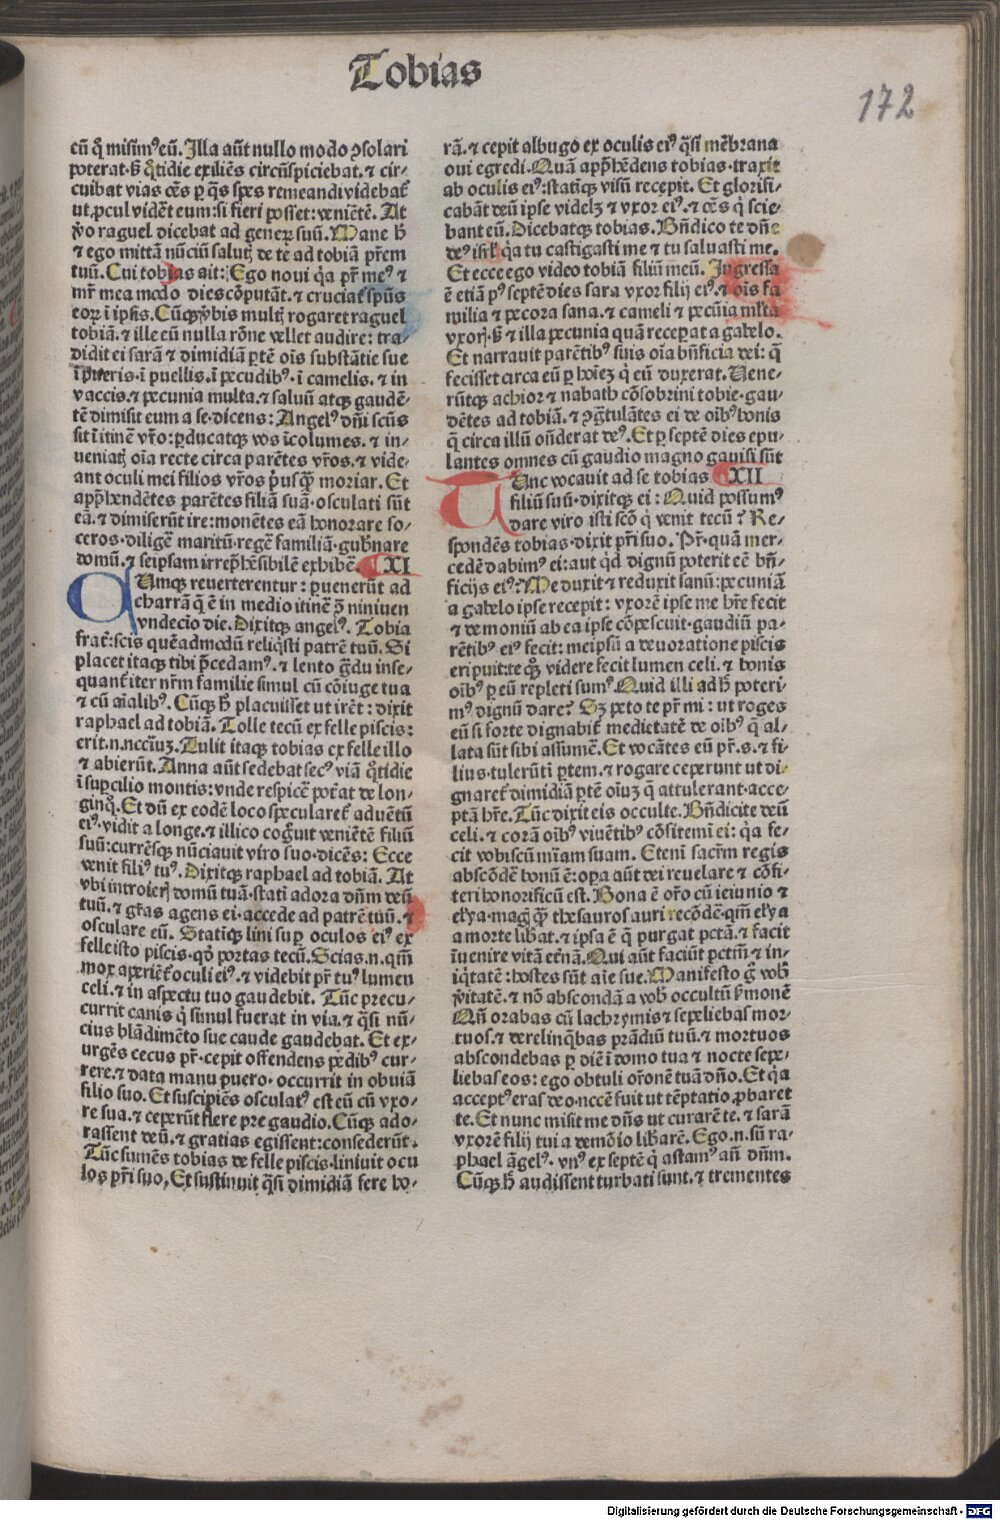 Tobias
172
cũ ꝙ misimꝰ eũ. Illa aũt nullo modo ↄsolari
poterat. sꝫ q̃tidie exiliẽs circũspiciebat. ⁊ cir⸗
cuibat vias oẽs p q̃s spes remeandi videbat̃
ut ꝓcul vidẽt eum: si fieri posset: veniẽtẽ. At
ṽo raguel dicebat ad geneꝝ suũ. Mane h̃
⁊ ego mittã nũciũ salutꝭ de te ad tobiã p̃rem
tuũ. Cui tobias ait: Ego noui q̃a pr̃ meꝰ ⁊
mr̃ mea modo dies cõputãt. ⁊ cruciat̃ sp̃us
eoꝝ ĩ ip̃is. Cũqꝫ ṽbis multꝭ rogaret raguel
tobiã. ⁊ ille eũ nulla rõne vellet audire: tra⸗
didit ei sarã ⁊ dimidiã ptẽ ois substãtie sue
ĩ pueris. ĩ puellis. ĩ pecudibꝰ. ĩ camelis. ⁊ in
vaccis. ⁊ pecunia multa. ⁊ saluũ atqꝫ gaudẽ⸗
tẽ dimisit eum a se. dicens: Angelꝰ dñi scũs
sit ĩ itinẽ vr̃o: pducatqꝫ vos ĩcolumes. ⁊ in⸗
ueniatꝭ oĩa recte circa parẽtes vr̃os. ⁊ vide⸗
ant oculi mei filios vr̃os p̃usq̃ꝫ moriar. Et
app̃hendẽtes parẽtes filiã suã. osculati sũt
eã. ⁊ dimiserũt ire: monẽtes eã honorare so⸗
ceros. diligẽ maritũ. regẽ familiã. gub̃nare
domũ. ⁊ seipsam irrep̃hẽsibilẽ exhibẽ. XI
CUmqꝫ reuerterentur: puenerũt ad
charrã q̃ ẽ in medio itinẽ ꝯ̃ niniuen
vndecio die. Dixitqꝫ angelꝰ. Tobia
frat̃: scis quẽadmodũ reliq̃sti patrẽ tuũ. Si
placet itaqꝫ tibi p̃cedamꝰ. ⁊ lento g̃du inse⸗
quant̃ iter nr̃m familie simul cũ cõiuge tua
⁊ cũ aĩalibꝰ. Cũqꝫ h̃ placuisset ut irẽt: dixit
raphael ad tobiã. Tolle tecũ ex felle piscis:
erit. n. nccĩuꝫ. Tulit itaqꝫ tobias ex felle illo
⁊ abierũt. Anna aũt sedebat secꝰ viã q̃tidie
ĩ supcilio montis: vnde respicẽ pot̃at de lon⸗
ginq̃. Et dũ ex eodẽ loco speculareĩ aduẽtũ
eiꝰ. vidit a longe. ⁊ illico cog̃uit veniẽtẽ filiũ
suũ: currẽsqꝫ nũciauit viro suo. dicẽs: Ecce
venit filiꝰ tuꝰ. Dixitqꝫ raphael ad tobiã. At
vbi introierꝭ domũ tuã. statĩ adora dñm deũ
tuũ. ⁊ gr̃as agens ei. accede ad patrẽ tuũ. ⁊
osculare eũ. Statĩqꝫ lini sup oculos eiꝰ ex
felle isto piscis. qõ portas tecũ. Scias. n. qm̃
mox aperiẽt̃ oculi eiꝰ. ⁊ videbit pr̃ tuꝰ lumen
celi. ⁊ in aspectu tuo gaudebit. Tũc precu⸗
currit canis q̃ simul fuerat in via. ⁊ q̃si nũ⸗
cius blãdimẽto sue caude gaudebat. Et ex⸗
urgẽs cecus pr̃. cepit offendens pedibꝰ cur⸗
rere. ⁊ data manu puero. occurrit in obuiã
filio suo. Et suscipiẽs osculatꝰ est eũ cũ vxo⸗
re sua. ⁊ ceperũt flere pre gaudio. Cũqꝫ ado⸗
rassent deũ. ⁊ gratias egissent: consederũt.
Tũc sumẽs tobias de felle piscis. liniuit ocu
los pr̃i suo, Et sustinuit q̃si dimidiã fere ho⸗
rã. ⁊ cepit albugo ex oculis eiꝰ q̃si mẽbrana
oui egredi. Quã app̃hẽdens tobias. traxit
ab oculis eiꝰ: statĩqꝫ visũ recepit. Et glorifi⸗
cabãt deũ ipse videlꝫ ⁊ vxor eiꝰ. ⁊ oẽs q̃ scie⸗
bant eũ. Dicebatqꝫ tobias. Bñdico te dñe
deꝰ isrl̃. q̃a tu castigasti me ⁊ tu saluasti me.
Et ecce ego video tobiã filiũ meũ. Ingressa
ẽ etiã pꝰ septẽ dies sara vxor filij eiꝰ. ⁊ ois fa
milia ⁊ pecora sana. ⁊ cameli ⁊ pecũia ml̃ta
vxorꝭ. sꝫ ⁊ illa pecunia quã receperat a gabelo.
Et narrauit parẽtibꝰ suis oĩa bñficia dei: q̃
fecisset circa eũ p hoĩeꝫ q̃ eũ duxerat. Uene⸗
rũtqꝫ achior ⁊ nabath cõsobrini tobie. gau⸗
dẽtes ad tobiã. ⁊ ꝯg̃tulãtes ei de oĩbꝰ bonis
q̃ circa illũ oñderat deꝰ. Et p septẽ dies epu⸗
lantes omnes cũ gaudio magno gauisi sũt
TUnc vocauit ad se tobias XII
filiũ suũ. dixitqꝫ ei: Quid possumꝰ
dare viro isti scõ q̃ venit tecũ? Re⸗
spondẽs tobias. dixit pr̃i suo. Pr̃. quã mer⸗
cedẽ dabimꝰ ei: aut q̃d dignũ poterit eẽ bñ⸗
ficijs eiꝰ? Me duxit ⁊ reduxit sanũ: pecuniã
a gabelo ipse recepit: vxorẽ ipse me hr̃e fecit
⁊ demoniũ ab ea ipse cõpescuit. gaudiũ pa⸗
rẽtibꝰ eiꝰ fecit: meipsũ a deuoratione piscis
eripuit: te q̃ꝫ videre fecit lumen celi. ⁊ bonis
oĩbꝰ p eũ repleti sumꝰ. Quid illi ad h̃ poteri⸗
mꝰ dignũ dare? Sꝫ peto te pr̃ mi: ut roges
eũ si forte dignabit̃ medietatẽ de oĩbꝰ q̃ al⸗
lata sũt sibi assumẽ. Et vocãtes eũ pr̃. s. ⁊ fi⸗
lius. tulerũt ĩ ptem. ⁊ rogare ceperunt ut di⸗
gnaret̃ dimidiã ptẽ oĩuꝫ q̃ attulerant. acce⸗
ptã hr̃e. Tũc dixit eis occulte. Bñdicite deũ
celi. ⁊ corã oĩbꝰ viuẽtibꝰ cõfitemĩ ei: q̃a fe⸗
cit vobiscũ mĩam suam. Etenĩ sacr̃m regis
abscõdẽ bonũ ẽ: opa aũt dei reuelare ⁊ cõfi⸗
teri honorificũ est. Bona ẽ or̃o cũ ieiunio ⁊
ely̾a. mag̃ q̃ꝫ thesauros auri recõdẽ. qm̃ ely̾a
a morte lib̃at. ⁊ ipsa ẽ q̃ purgat pctã. ⁊ facit
ĩuenire vitã et̃nã. Qui aũt faciũt pctm̃ ⁊ in⸗
iq̃tatẽ: hostes sũt aĩe sue. Manifesto g̃ vob̃
ṽitatẽ. ⁊ nõ abscondã a vob̃ occultũ s̃monẽ
Qñ orabas cũ lachrymis ⁊ sepeliebas mor⸗
tuos. ⁊ derelinq̃bas prãdiũ tuũ. ⁊ mortuos
abscondebas p diẽ ĩ domo tua ⁊ nocte sepe⸗
liebas eos: ego obtuli or̃onẽ tuã dño. Et q̃a
acceptꝰ eras deo. nccẽ fuit ut tẽptatio ꝓbaret
te. Et nunc misit me dñs ut curarẽ te. ⁊ sarã
vxorẽ filij tui a demõio lib̃arẽ. Ego. n. sũ ra⸗
phael ãgelꝰ. vnꝰ ex septẽ q̃ astamꝰ añ dñm.
Cũqꝫ h̃ audissent turbati sunt. ⁊ trementes
Digitalisierung gefördert durch die Deutsche Forschungsgemeinschaft - DFG